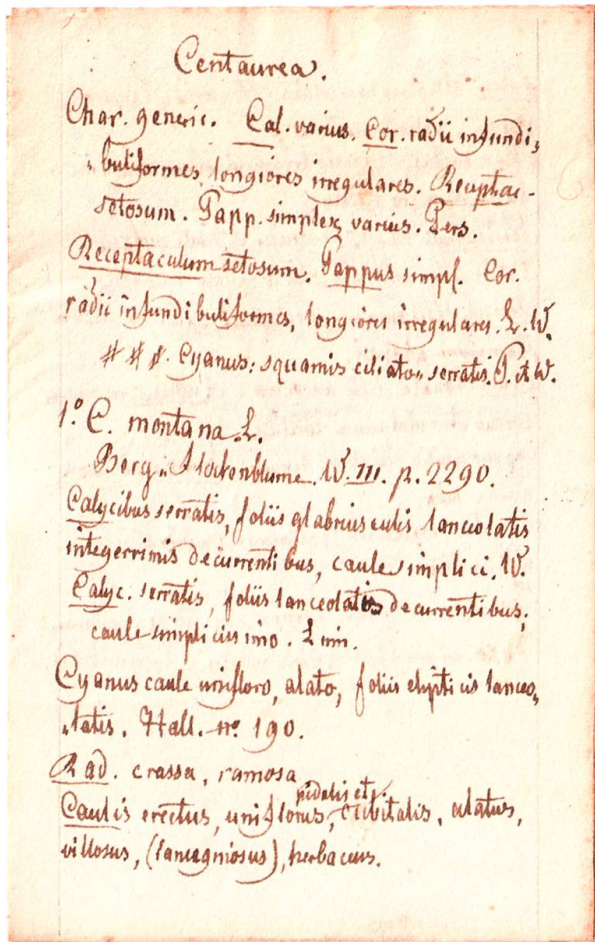 Centaurea.
Char. generic. Cal. varius. Cor. radii infundi„
„buliformes, longiores irregulares. Receptac-
setosum. Papp. simplex, varius. Pers.
Receptaculum setosum. Pappus simpl. Cor.
radii infundibuliformes, longiores irregulares. L. W.
# # #. Cyanus: squamis ciliato-serratis. P. et W.
1.° C. montana. L.
Berg-Flockenblume. W. III. p. 2290.
Calycibus serratis, foliis glabriusculis lanceolatis
integerrimis decurrentibus, caule simplici. W.
Calyc. serratis, foliis lanceolatis decurrentibus,
caule simplicissimo. Linn.
Cyanus caule unifloro, alato, foliis elipticis lanceo„
„latis. Hall. no. 190.
Rad. crassa, ramosa
pidalis et
Caulis erectus, uniflorus, cubitalis, alatus,
villosus, (lanuginosus), herbaceus.